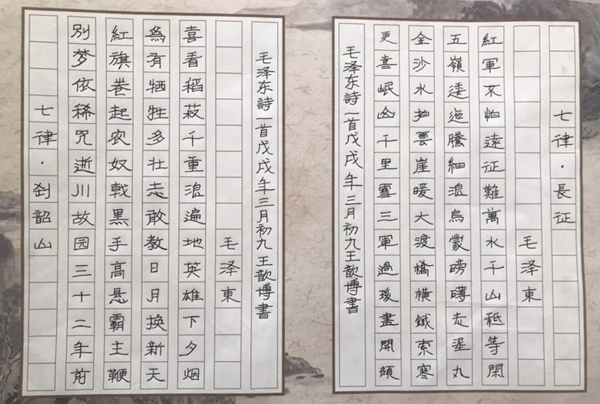 七律·長征
毛泽東
紅軍不怕遠征難萬水千山祗等閑
五嶺逶迤騰細浪烏蒙磅礴走泥丸
金沙水拍雲崖暖大渡橋橫鐵索寒
更喜岷山千里雪三軍過後盡開顏
毛泽东詩一首戊戌年三月初九王歆博書
七律·到韶山
别梦依稀咒逝川故园三十二年前
紅旗卷起农奴戟黑手高悬霸主鞭
為有牺牲多壮志敢教日月换新天
喜看稻菽千重浪遍地英雄下夕烟
毛泽東
毛泽东詩一首戊戌年三月初九王歆博書